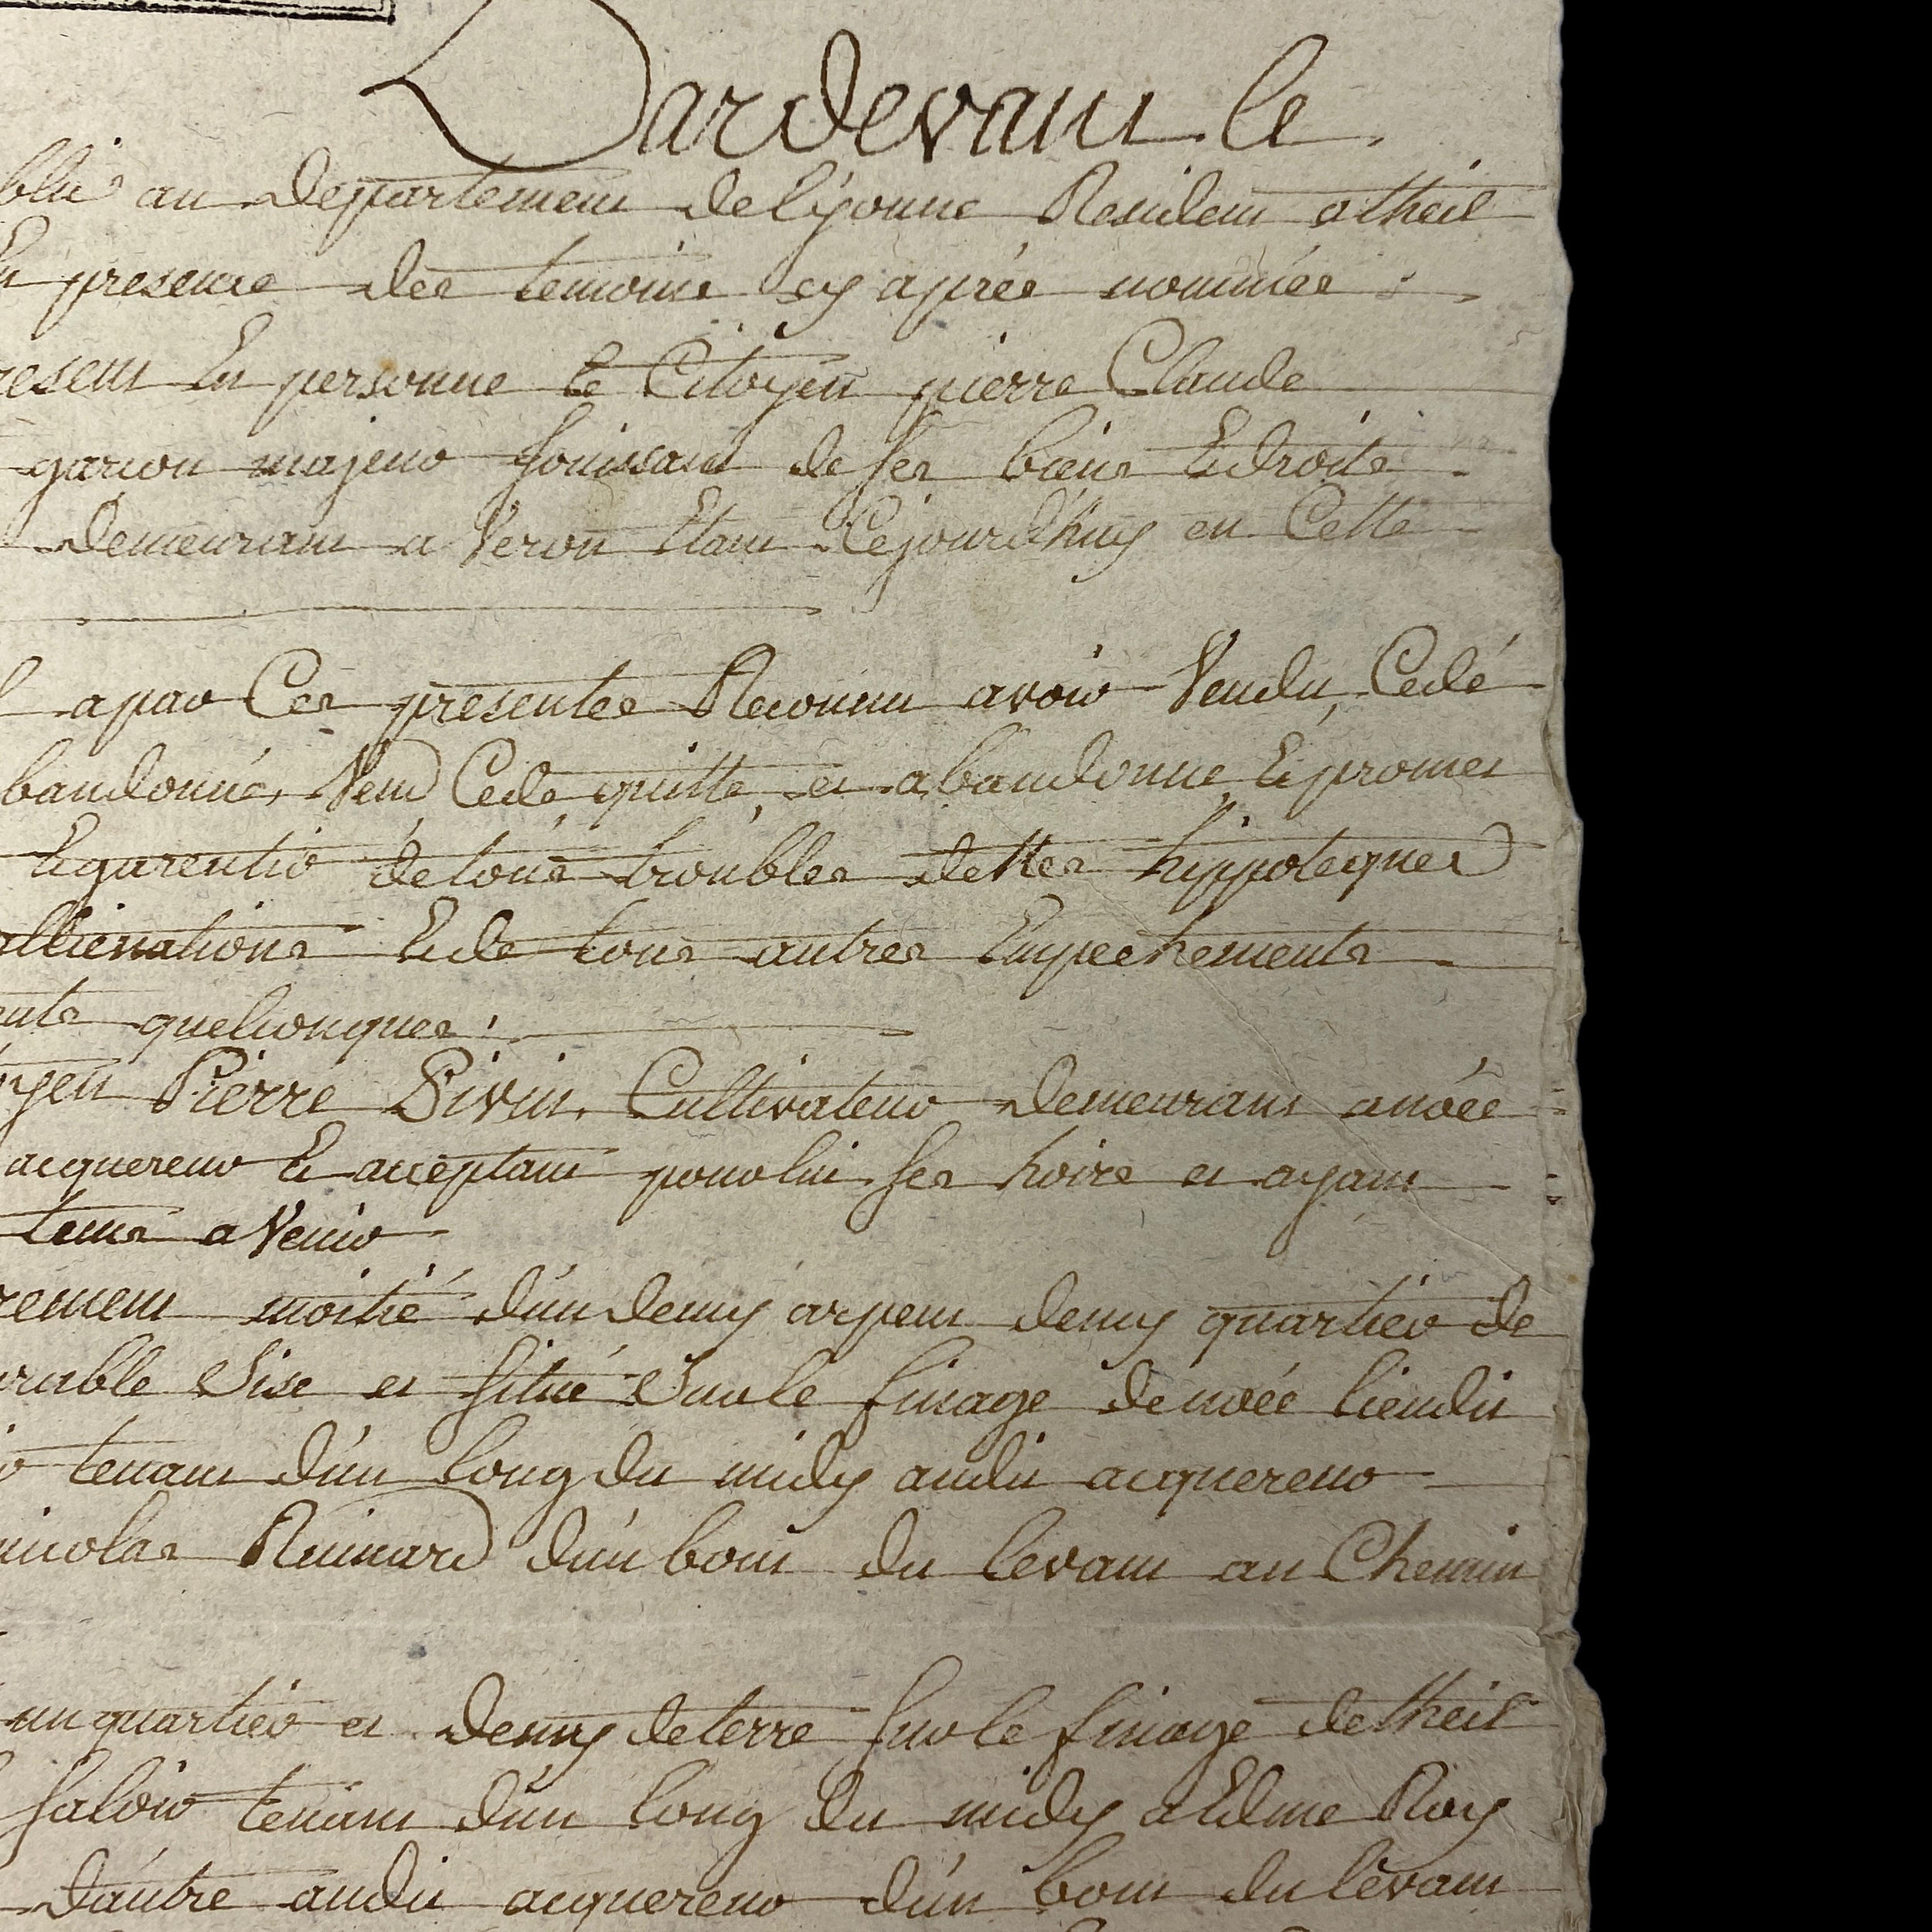 Pardevant le
blic au Departement de L'yonne Resident a theil
En presence des temoins cy aprés nommés
resent En personne le Citoyen pierre Claude
garcon majeur Jouissant de ses biens Et droits
Demeurant a Véron Etant Cejourd'huy en Cette
apar Ces presentes Reconnu avoir Vendu, Cedé
bandonné, Vend Cede, quitte, et abandonne, Et promet
Et garentir de tous troubles dettes hippoteques
allienations Et de tous autres Empechements
ents quelconques.
oyen Pierre Pivin, Cultivateur demeurant anoée
acquereur Et acceptant pour lui ses hoirs et ayant
tems a Venir
rement moitié d'un demy arpent demy quartier de
urable Sise et situé Sur le finage de noée lieudit
tenant d'un long du midy audit acquereur
nicolas Ruinard d'un bout du levant au Chemin
un quartier et demy de terre sur le finage de theil
saloir tenant d'un long du midy a Edme Roy
D'autre audit acquereur d'un bout du levant